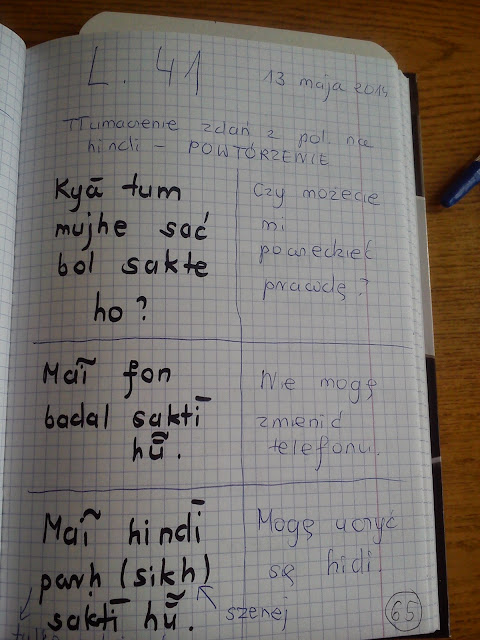 L. 41
13 maja 2014
Tłumaczenie zdań z pol. na
hindi – POWTÓRZENIE
Kyā tum
mujhe sać
bol sakte
ho ?
Czy możecie
mi
powiedzieć
prawdę ?
Maĩ fon
badal saktī
hū̃.
Nie mogę
zmienić
telefonu.
Maĩ hindī
paṛh (sikh)
saktī hū̃.
Mogę uczyć
się hidi.
szerzej
65